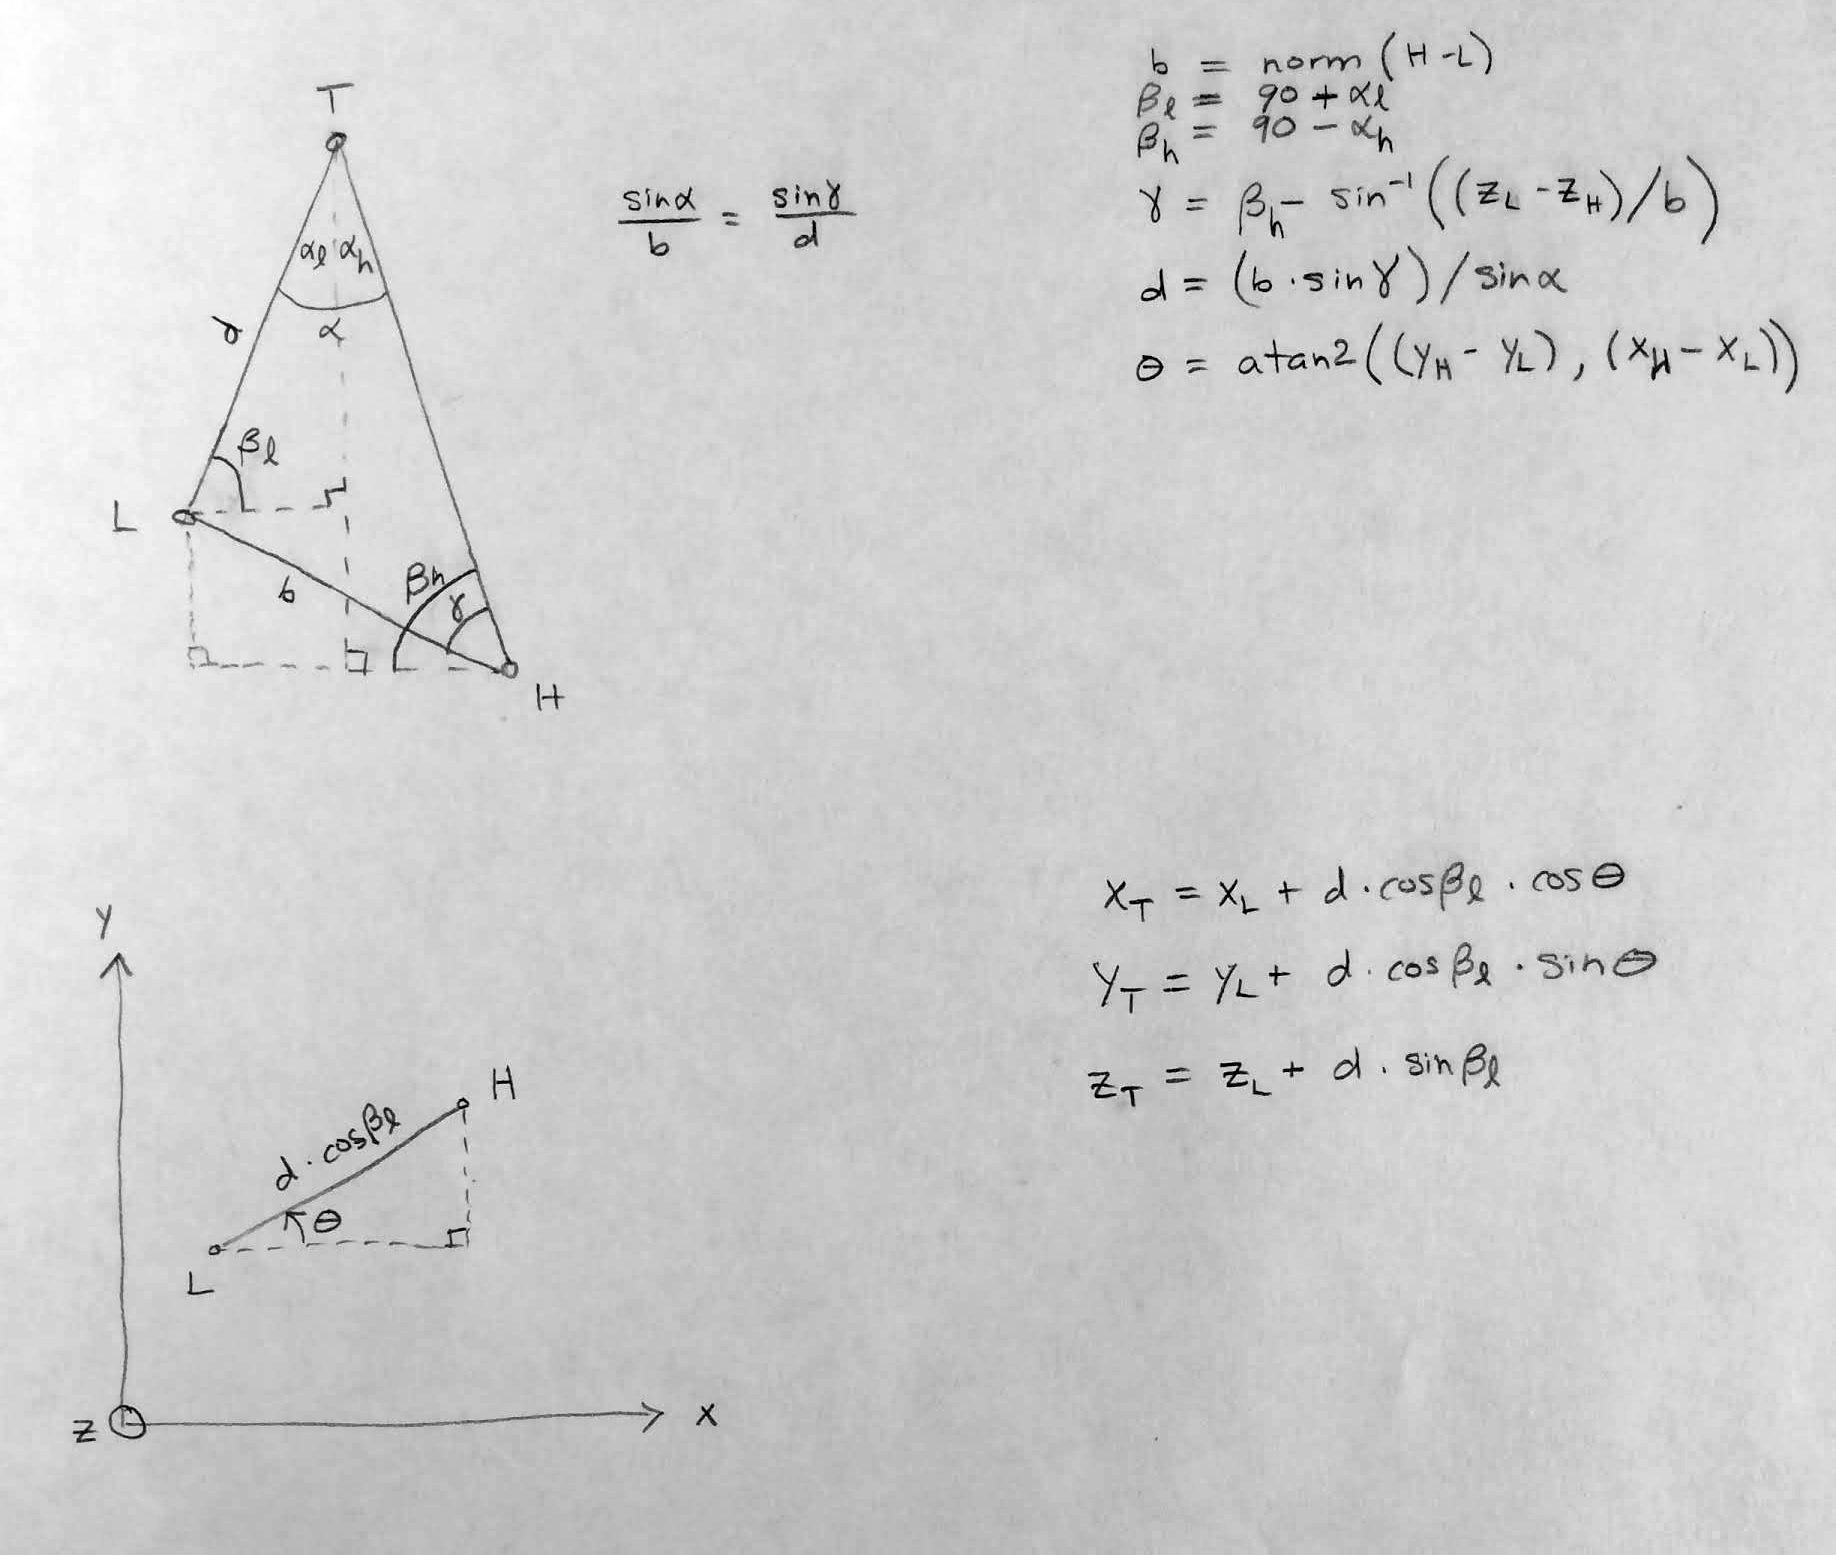 T
αₗ αₕ
α
d
βₗ
L
b
βₕ
γ
H
sinα/b = sinγ/d
b = norm (H-L)
βₗ = 90 + αₗ
βₕ = 90 - αₕ
γ = βₕ - sin⁻¹((z_L - z_H)/b)
d = (b · sinγ) / sinα
θ = atan2((y_H - y_L), (x_H - x_L))
Y
H
d · cosβₗ
θ
L
Z
X
x_T = x_L + d · cosβₗ · cosθ
y_T = y_L + d · cosβₗ · sinθ
z_T = z_L + d · sinβₗ